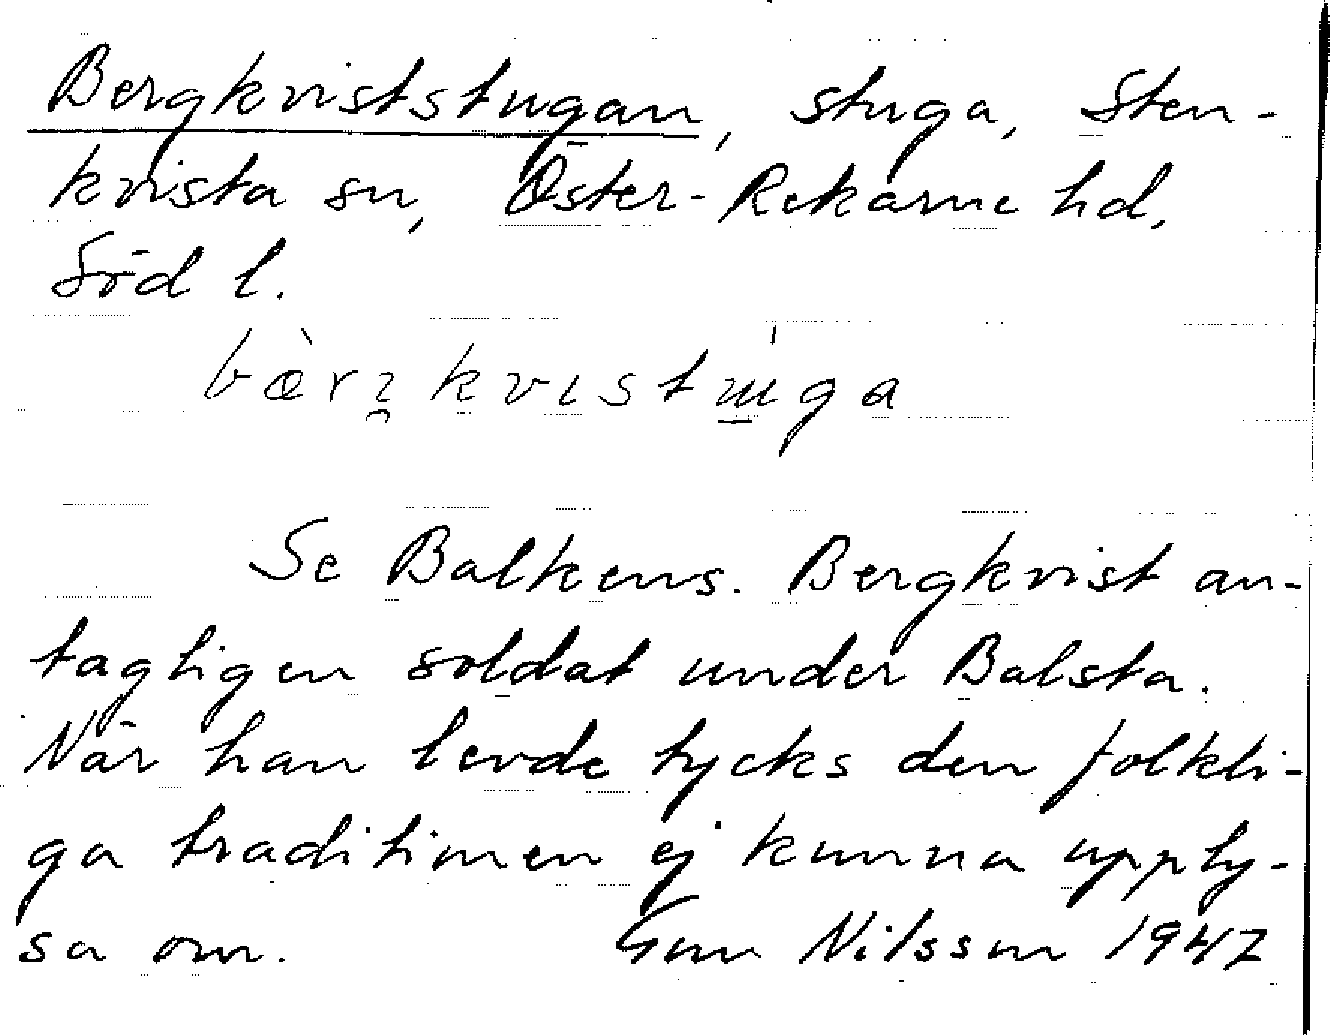 Bergkviststugan, stuga, Sten-
kvista sn, Öster-Rekarne hd,
Söd l.
bæ̀rɿ̯kvɪstɯ̱̍ga
Se Balkens. Bergkvist an-
tagligen soldat under Balsta.
När han levde tycks den folkli-
ga traditionen ej kunna upply-
sa om. Gun Nilsson 1947